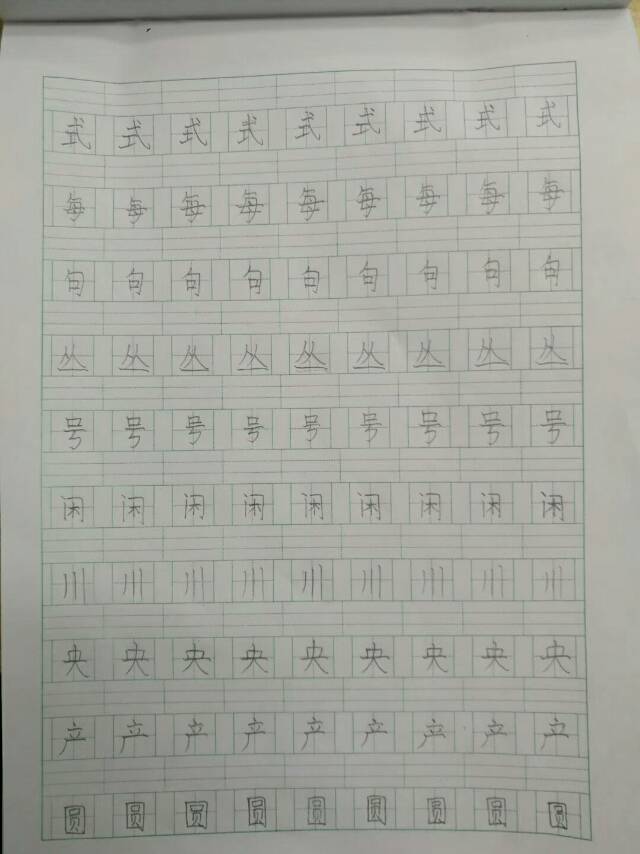 式 式 式 式 式 式 式 式 式
每 每 每 每 每 每 每 每 每
句 句 句 句 句 句 句 句 句
丛 丛 丛 丛 丛 丛 丛 丛 丛
号 号 号 号 号 号 号 号 号
闲 闲 闲 闲 闲 闲 闲 闲 闲
川 川 川 川 川 川 川 川 川
央 央 央 央 央 央 央 央 央
产 产 产 产 产 产 产 产 产
圆 圆 圆 圆 圆 圆 圆 圆 圆